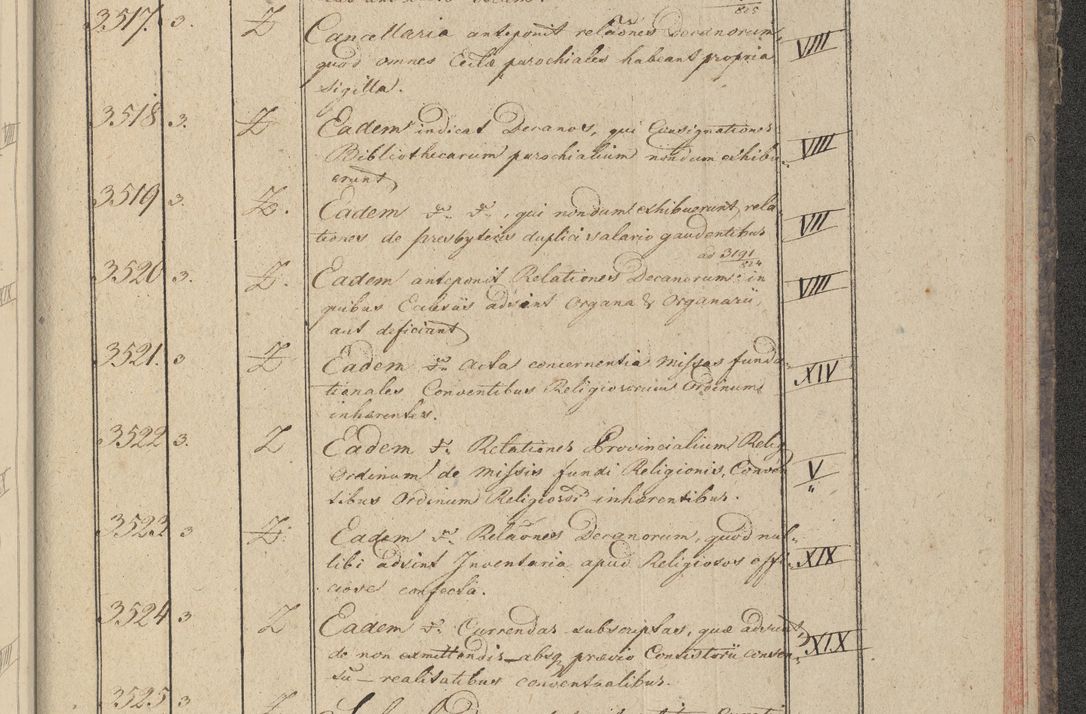 825
3517. 3. Z Cancellaria anteponit relaões Decanorum, VIII
quod omnes Eccla parochiales habeant propria
Sigilla.
3518 3. Z Eadem indicat Decanos, qui Consignationes VIII
Bibliothecarum parochialium nondum exhibu
erunt
3519 3. Z. Eadem qui nondum exhibuerunt rela- VII
tiones de presbyteris duplici salario gaudentibus
ad 3191
3520 3. Z. Eadem anteponit Relationes Decanorum: in VIII
quibus Ecclesiis adsint Organa & Organarii,
aut deficiant
3521. 3 Z Eadem Acta concernentia Missas funda- XIV
tionales Conventibus Religiosorum Ordinum
inhærentes.
3522 3. Z. Eadem Relationes Provincialium Relig V
Ordinum de Missis fundi Religionis, Conven
tibus Ordinum Religiosi inhærentibus.
3523 3 Z. Eadem Relaones Decanorum, quod nul- XIX
libi adsint Inventaria apud Religiosos offi-
ciose confecta.
3524 3 Z Eadem Currendas subscriptas, quæ adsunt XIX
de non admittendis absq prævio Consistorii consen-
su – realitatibus conventualibus.
3525 3